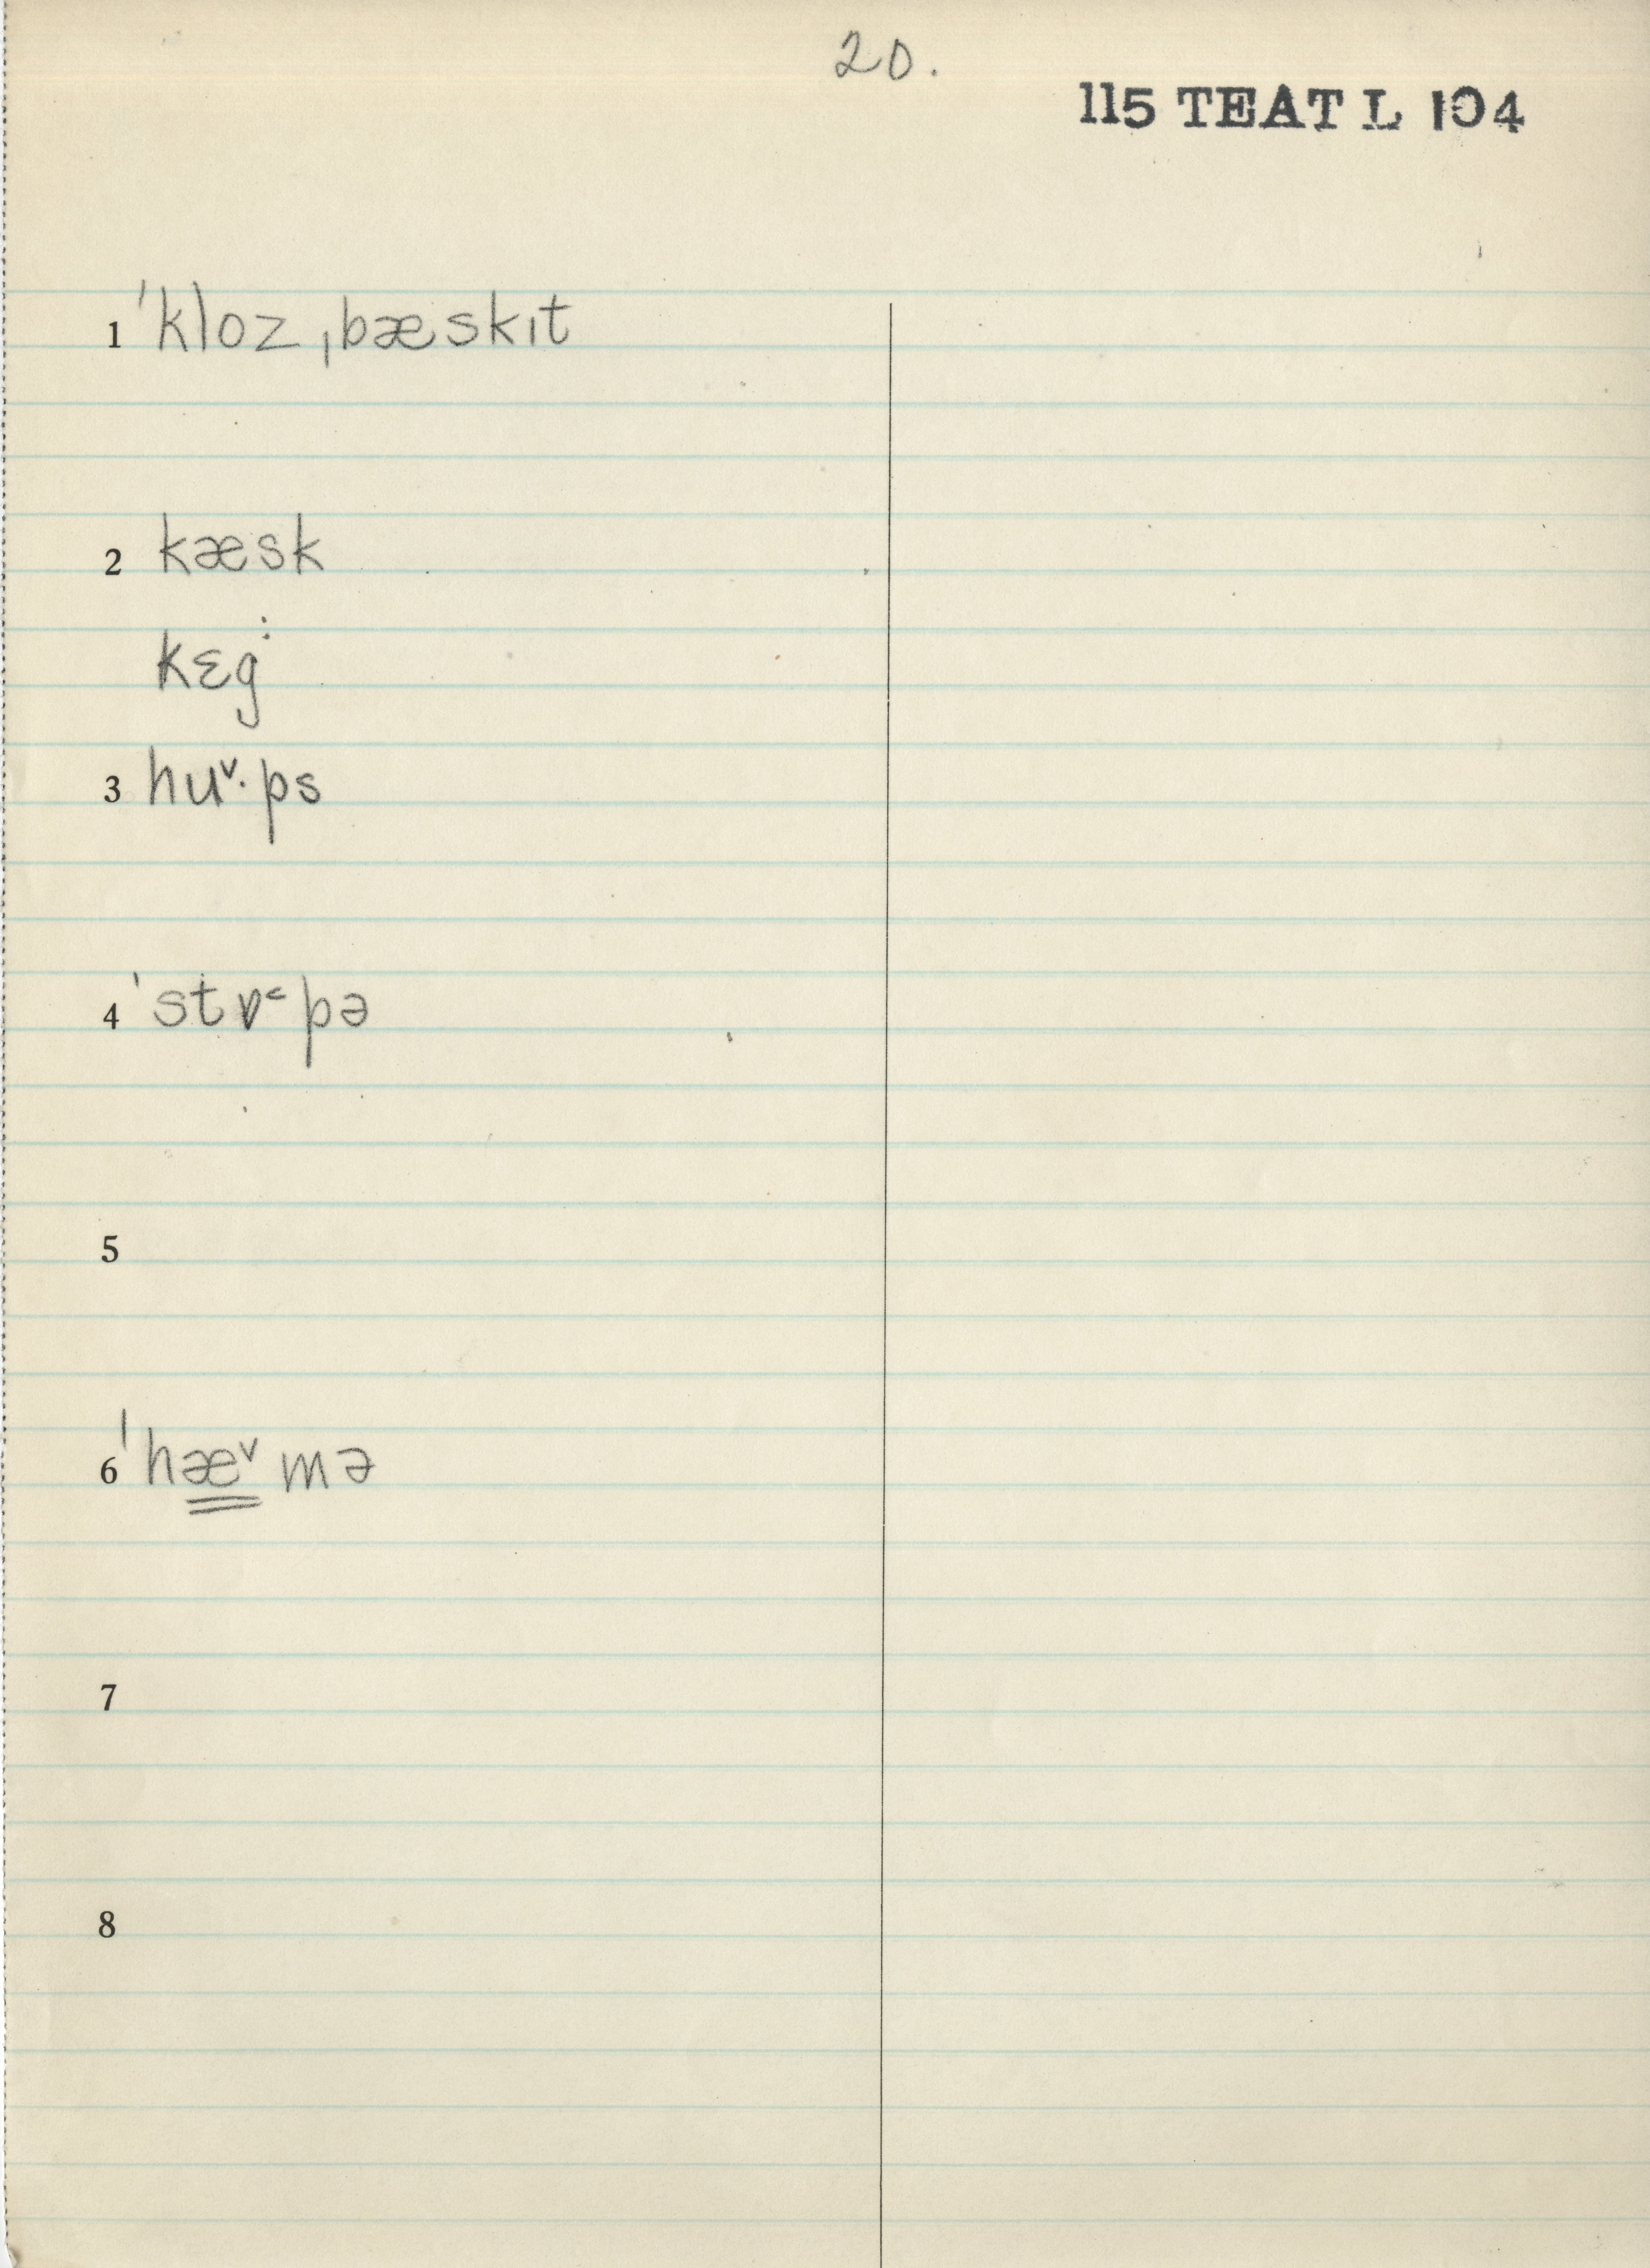 20.
115 TEAT L 104
1 ˈkloz ˌbæskɪt
2 kæsk
kɛg:
3 huᵛ·ps
4 ˈstɒ˂pə
5
6 ˈhæᵛmə
7
8